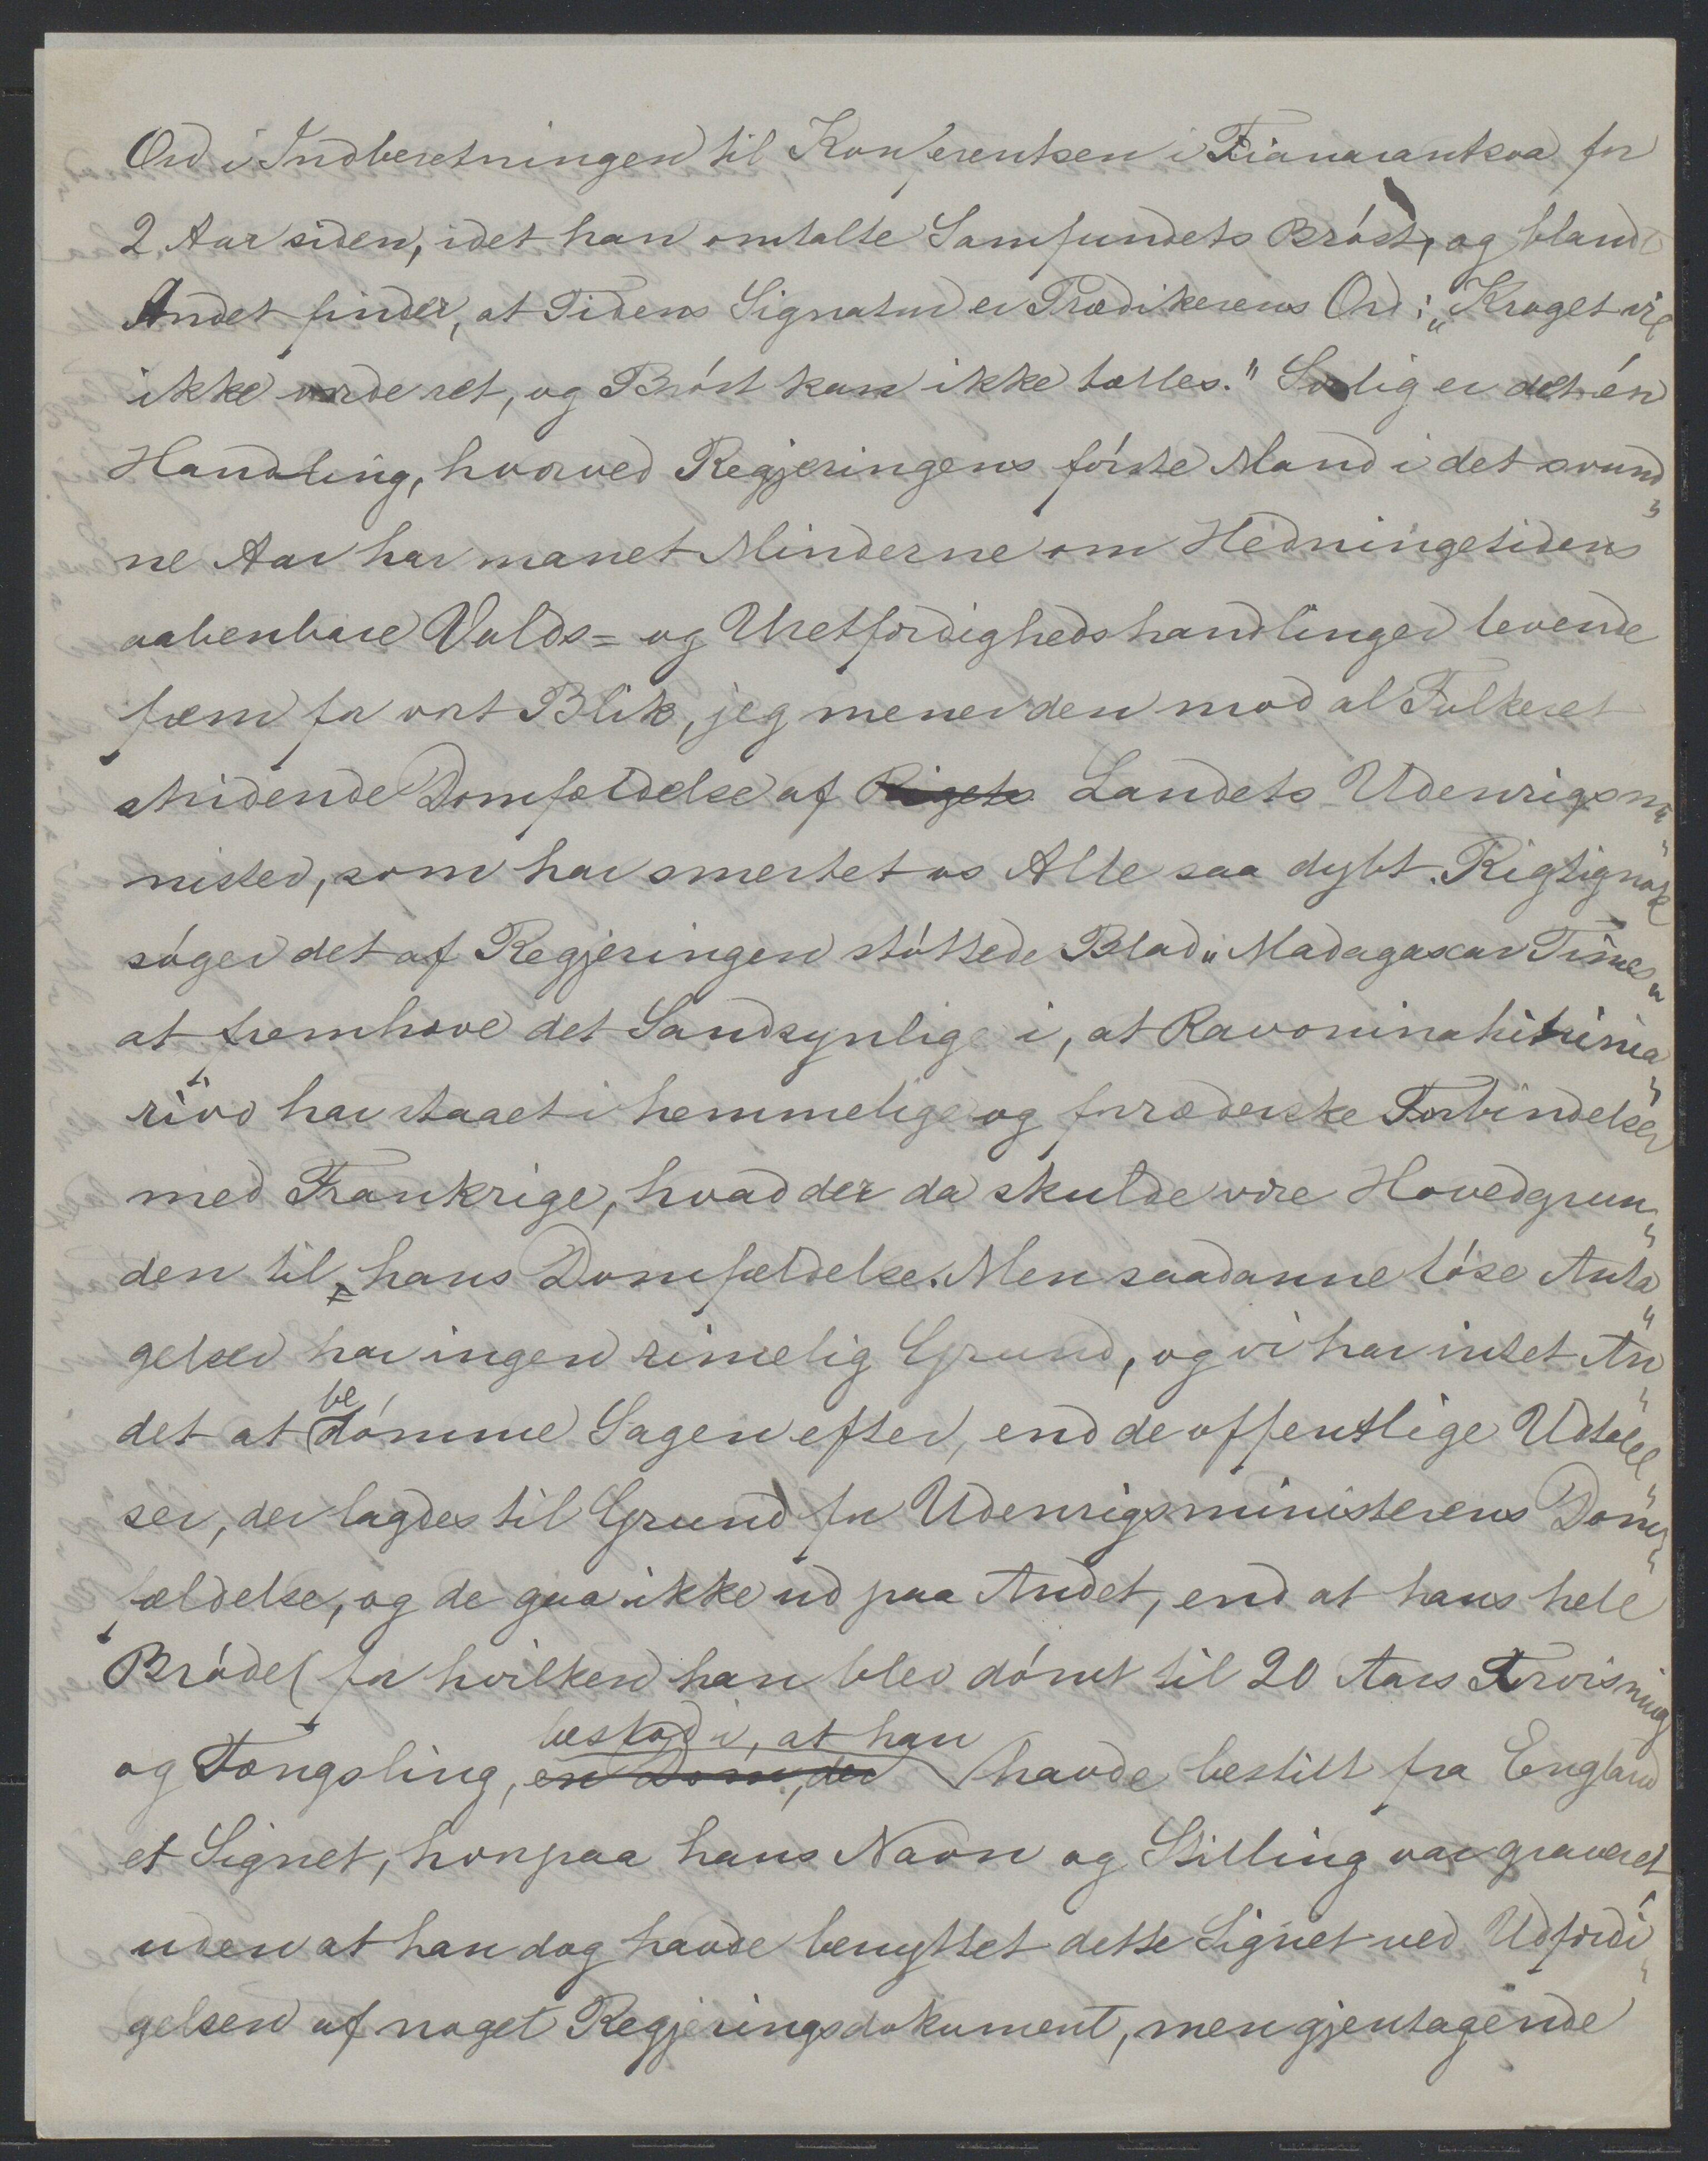 Ord i Indberetningen til Konferentsen i Fianarantsoa for
2 Aar siden, idet han omtalte Samfundets Bróst, og blandt
Andet finder, at Tidens Signatur er Prædikerens Ord: „Kroget vil
ikke vorde ret, og Bróst kan ikke tælles." Særlig er det én
Handling, hvorved Regjeringens fórste Mand i det svund„
ne Aar har manet Minderne om Hedningetidens
aabenbare Volds= og Uretfærdighedshandlinger levende
frem for vort Blik, jeg mener den mod al Folkeret
stridende Domfældelse af Rigets Landets Udenrigsmi„
nister, som har smertet os Alle saa dybt. Rigtignok
sóger det af Regjeringen stóttede Blad „Madagascar Times„
at fremhæve det Sandsynlige i, at Ravoninahitrinia„
rivo har staaet i hemmelige og forræderske Forbindelser
med Frankrige, hvad der da skulde være Hovedgrun„
den til hans Domfældelse. Men saadanne lóse Anta„
gelser har ingen rimelig Grund, og vi har intet An„
det at bedómme Sagen efter, end de offentlige Udtalel„
ser, der lagdes til Grund for Udenrigsministerens Dom„
fældelse, og de gaa ikke ud paa Andet, end at hans hele
Bróde (for hvilken han blev dómt til 20 Aars Forvisning
og Fængsling, en Dom, der bestod i, at han havde bestilt fra England
et Signet, hvorpaa hans Navn og Stilling var graveret
uden at han dog havde benyttet dette Signet ved Udfærdi„
gelsen af noget Regjeringsdokument, men gjentagende